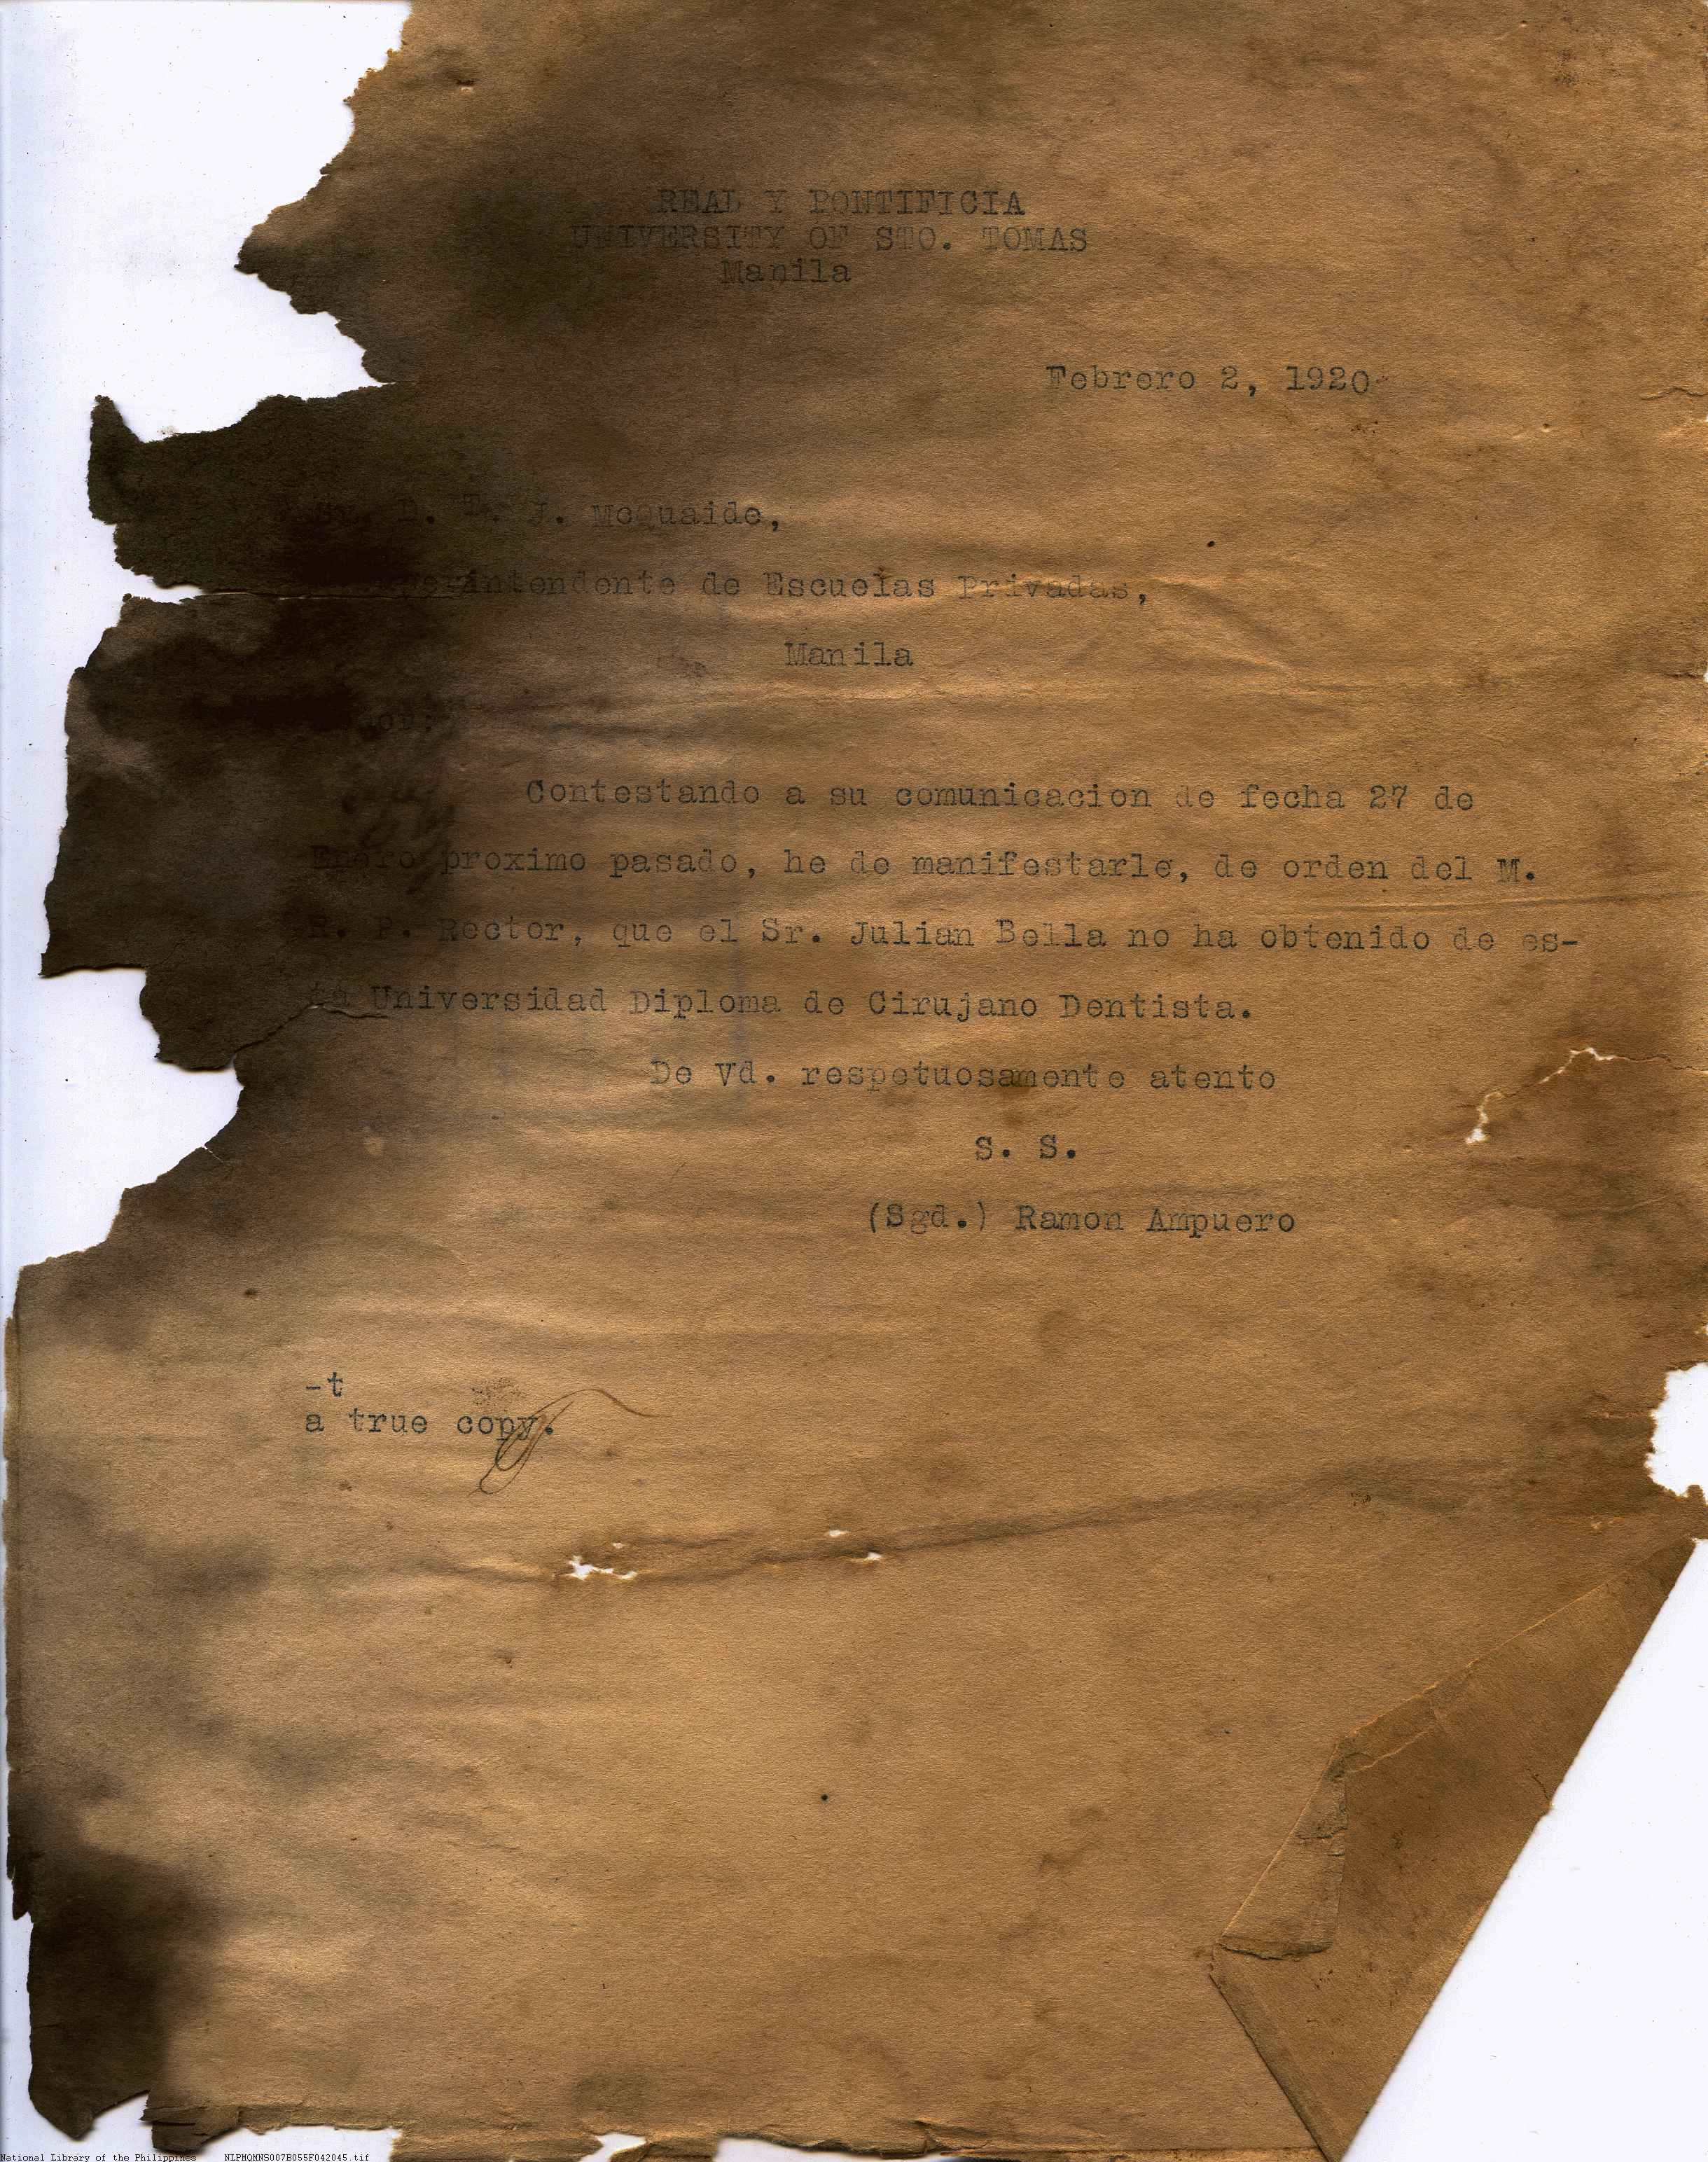 REAL Y PONTIFICIA
UNIVERSITY OF STO. TOMAS
Manila
Febrero 2, 1920
Sr. D. T. J. McQuaide,
perintendente de Escuelas Privadas,
Manila
or:
Contestando a su comunicacion de fecha 27 de
Enero proximo pasado, he de manifestarle, de orden del M.
R. P. Rector, que el Sr. Julian Bella no ha obtenido de es-
ta Universidad Diploma de Cirujano Dentista.
De Vd. respetuosamente atento
S. S.
(Sgd.) Ramon Ampuero
-t
a true copy.
National Library of the Philippines NLPMQMNS007B055F042045.tif